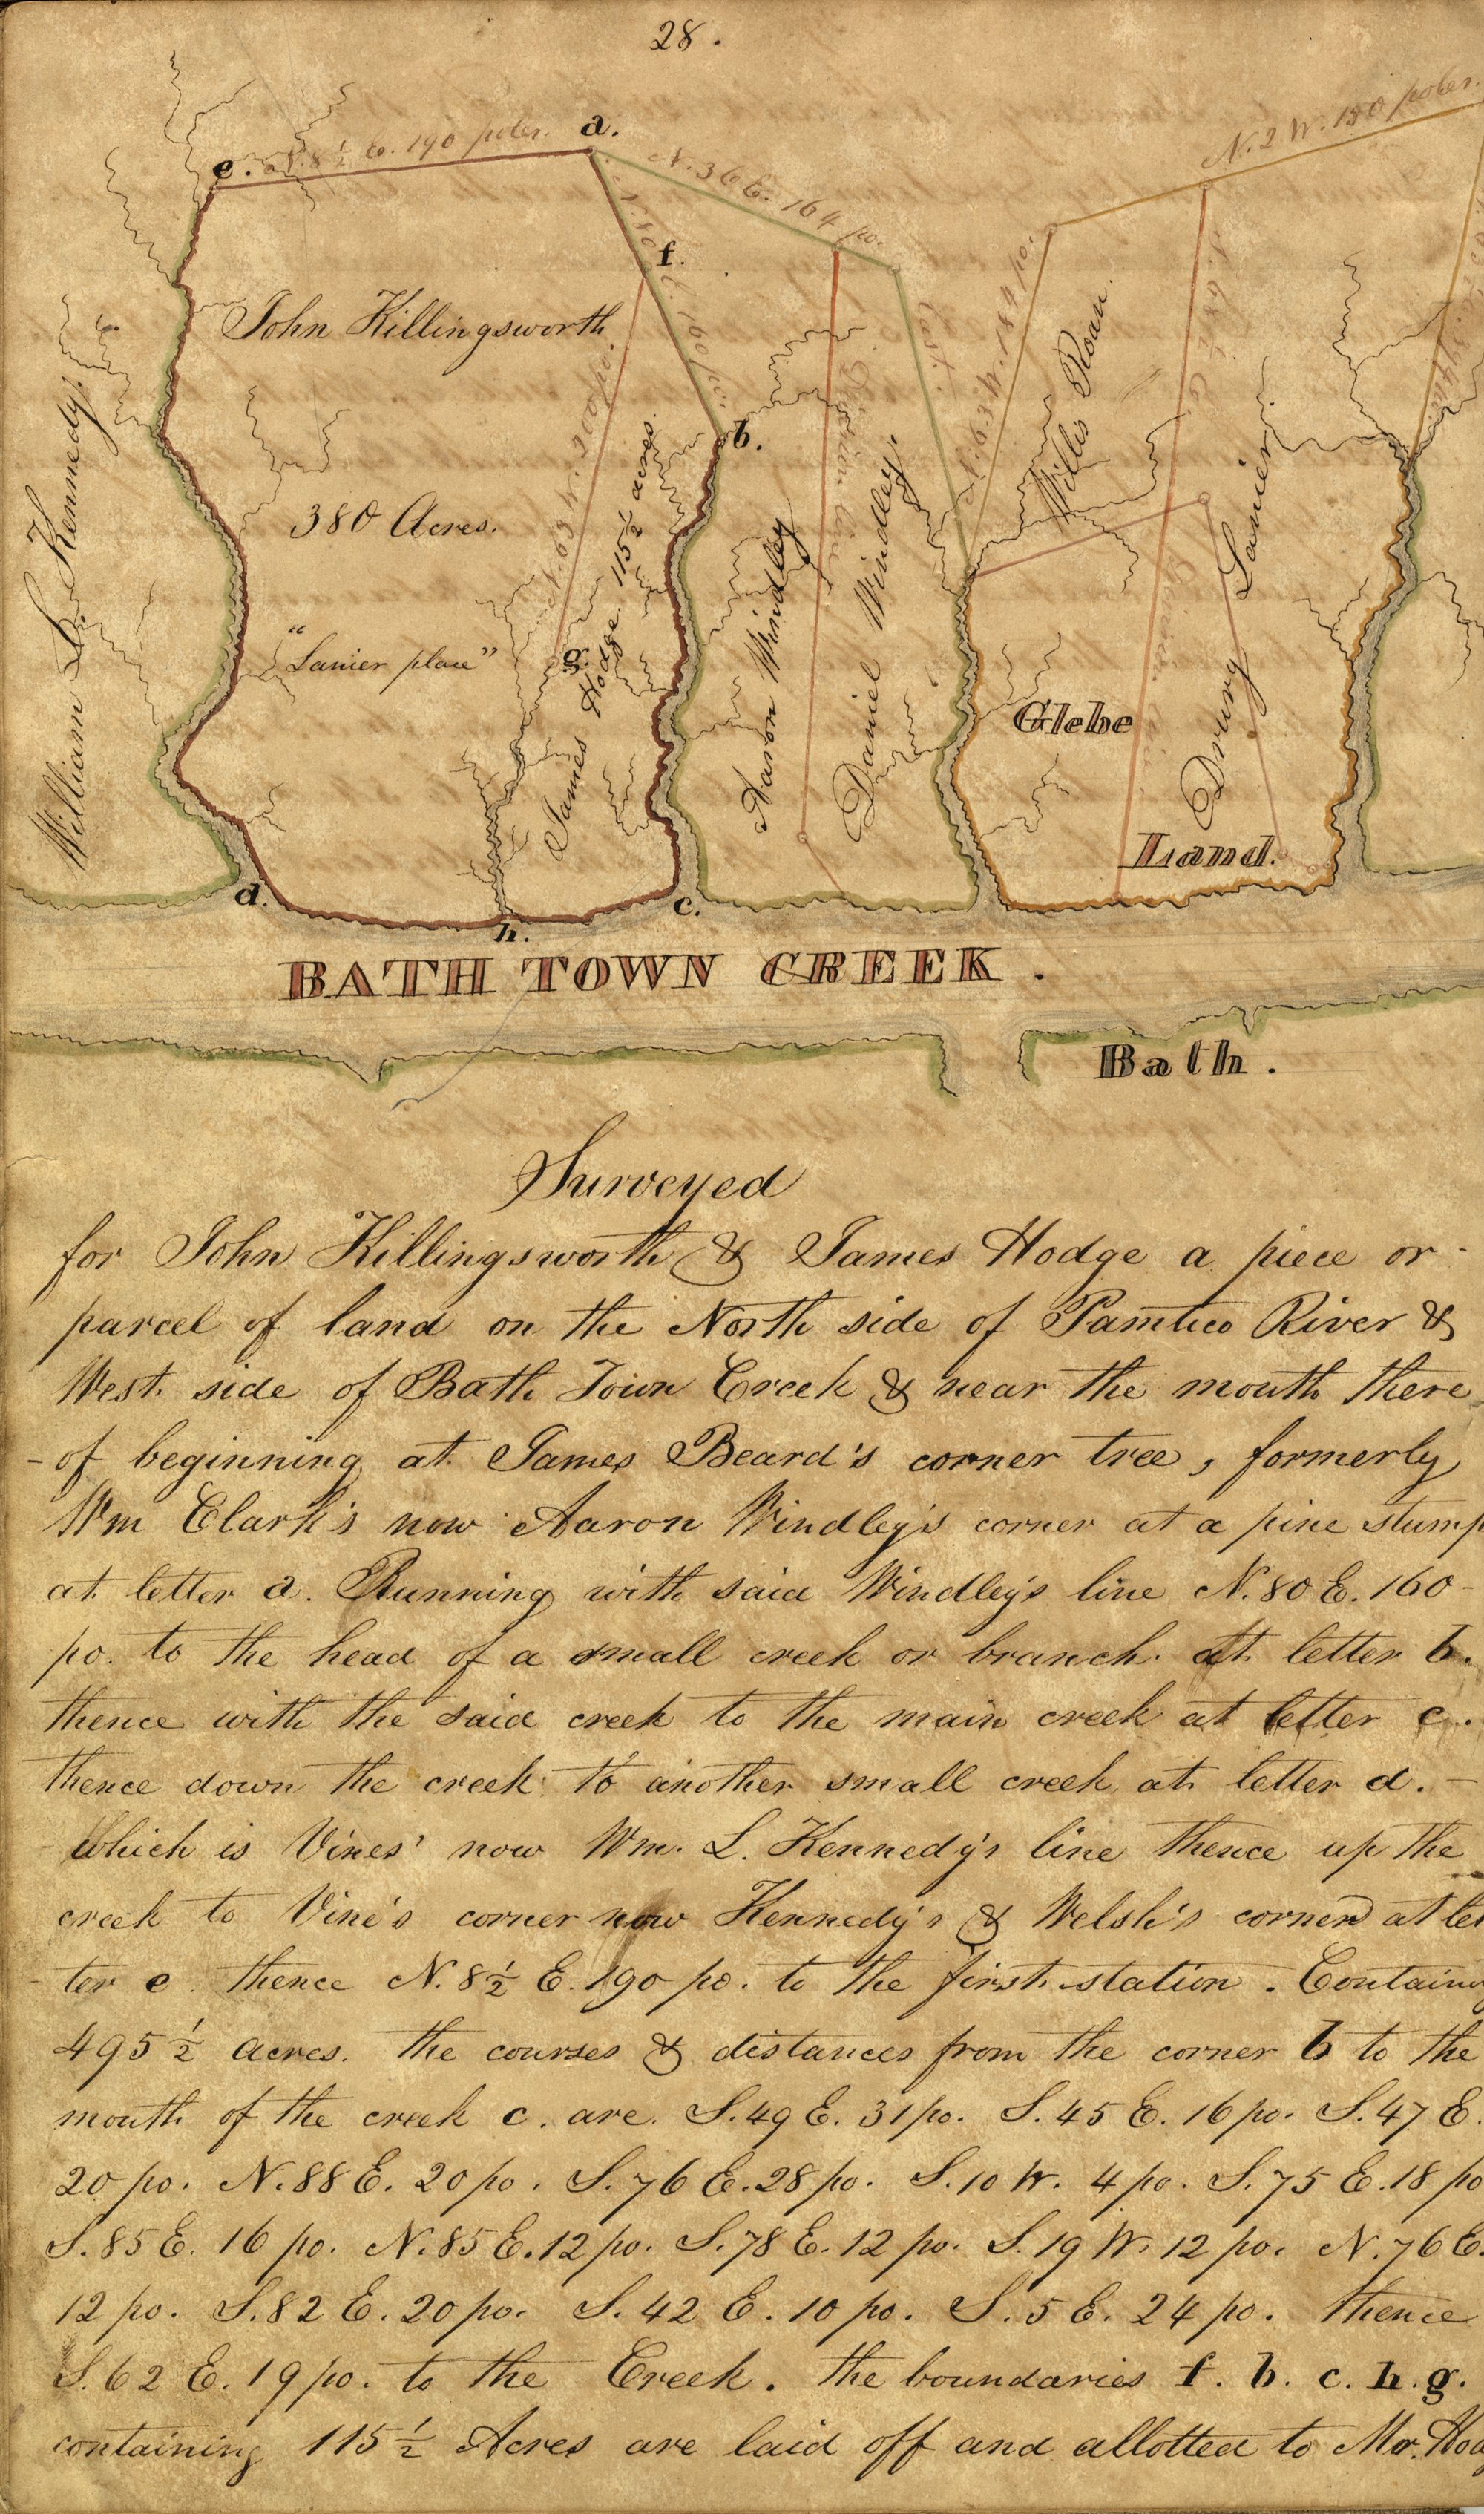 28.
e.
N. 8½ E. 190 poles.
a.
N. 36 E. 164 po.
N. 2 W. 150 poles.
f.
N. 80 E. 160 po.
East.
N. 63 W. 184 po.
S. 68½ E.
John Killingsworth
N. 63 W. 200 po.
b.
William L. Kennedy.
380 Acres.
"Lanier place"
g.
James Hodge 115½ acres.
Aaron Windley
Division line
Daniel Windley.
Willis Roan.
Drury Lanier
Glebe
Land.
d.
h.
c.
BATH TOWN CREEK.
Bath.
Surveyed
for John Killingsworth & James Hodge a piece or
parcel of land on the North side of Pamtico River &
West side of Bath Town Creek & near the mouth there
-of beginning at James Beard's corner tree, formerly
Wm Clark's now Aaron Windley's corner at a pine stump
at letter a. Running with said Windley's line N. 80 E. 160
po. to the head of a small creek or branch at letter b.
thence with the said creek to the main creek at letter c.
thence down the creek to another small creek at letter d. -
Which is Vines' now Wm. L. Kennedy's line thence up the
creek to Vine's corner now Kennedy's & Welsh's corner at let
ter e. thence N. 8½ E. 190 po. to the first station. Containing
495½ acres. the courses & distances from the corner b to the
mouth of the creek c. are. S. 49 E. 31 po. S. 45 E. 16 po. S. 47 E.
20 po. N. 88 E. 20 po. S. 76 E. 28 po. S. 10 W. 4 po. S. 75 E. 18 po
S. 85 E. 16 po. N. 85 E. 12 po. S. 78 E. 12 po. S. 19 W. 12 po. N. 76 E.
12 po. S. 82 E. 20 po. S. 42 E. 10 po. S. 5 E. 24 po. thence
S. 62 E. 19 po. to the Creek. the boundaries f. b. c. h. g.
containing 115½ Acres are laid off and allotted to Mr. Hod